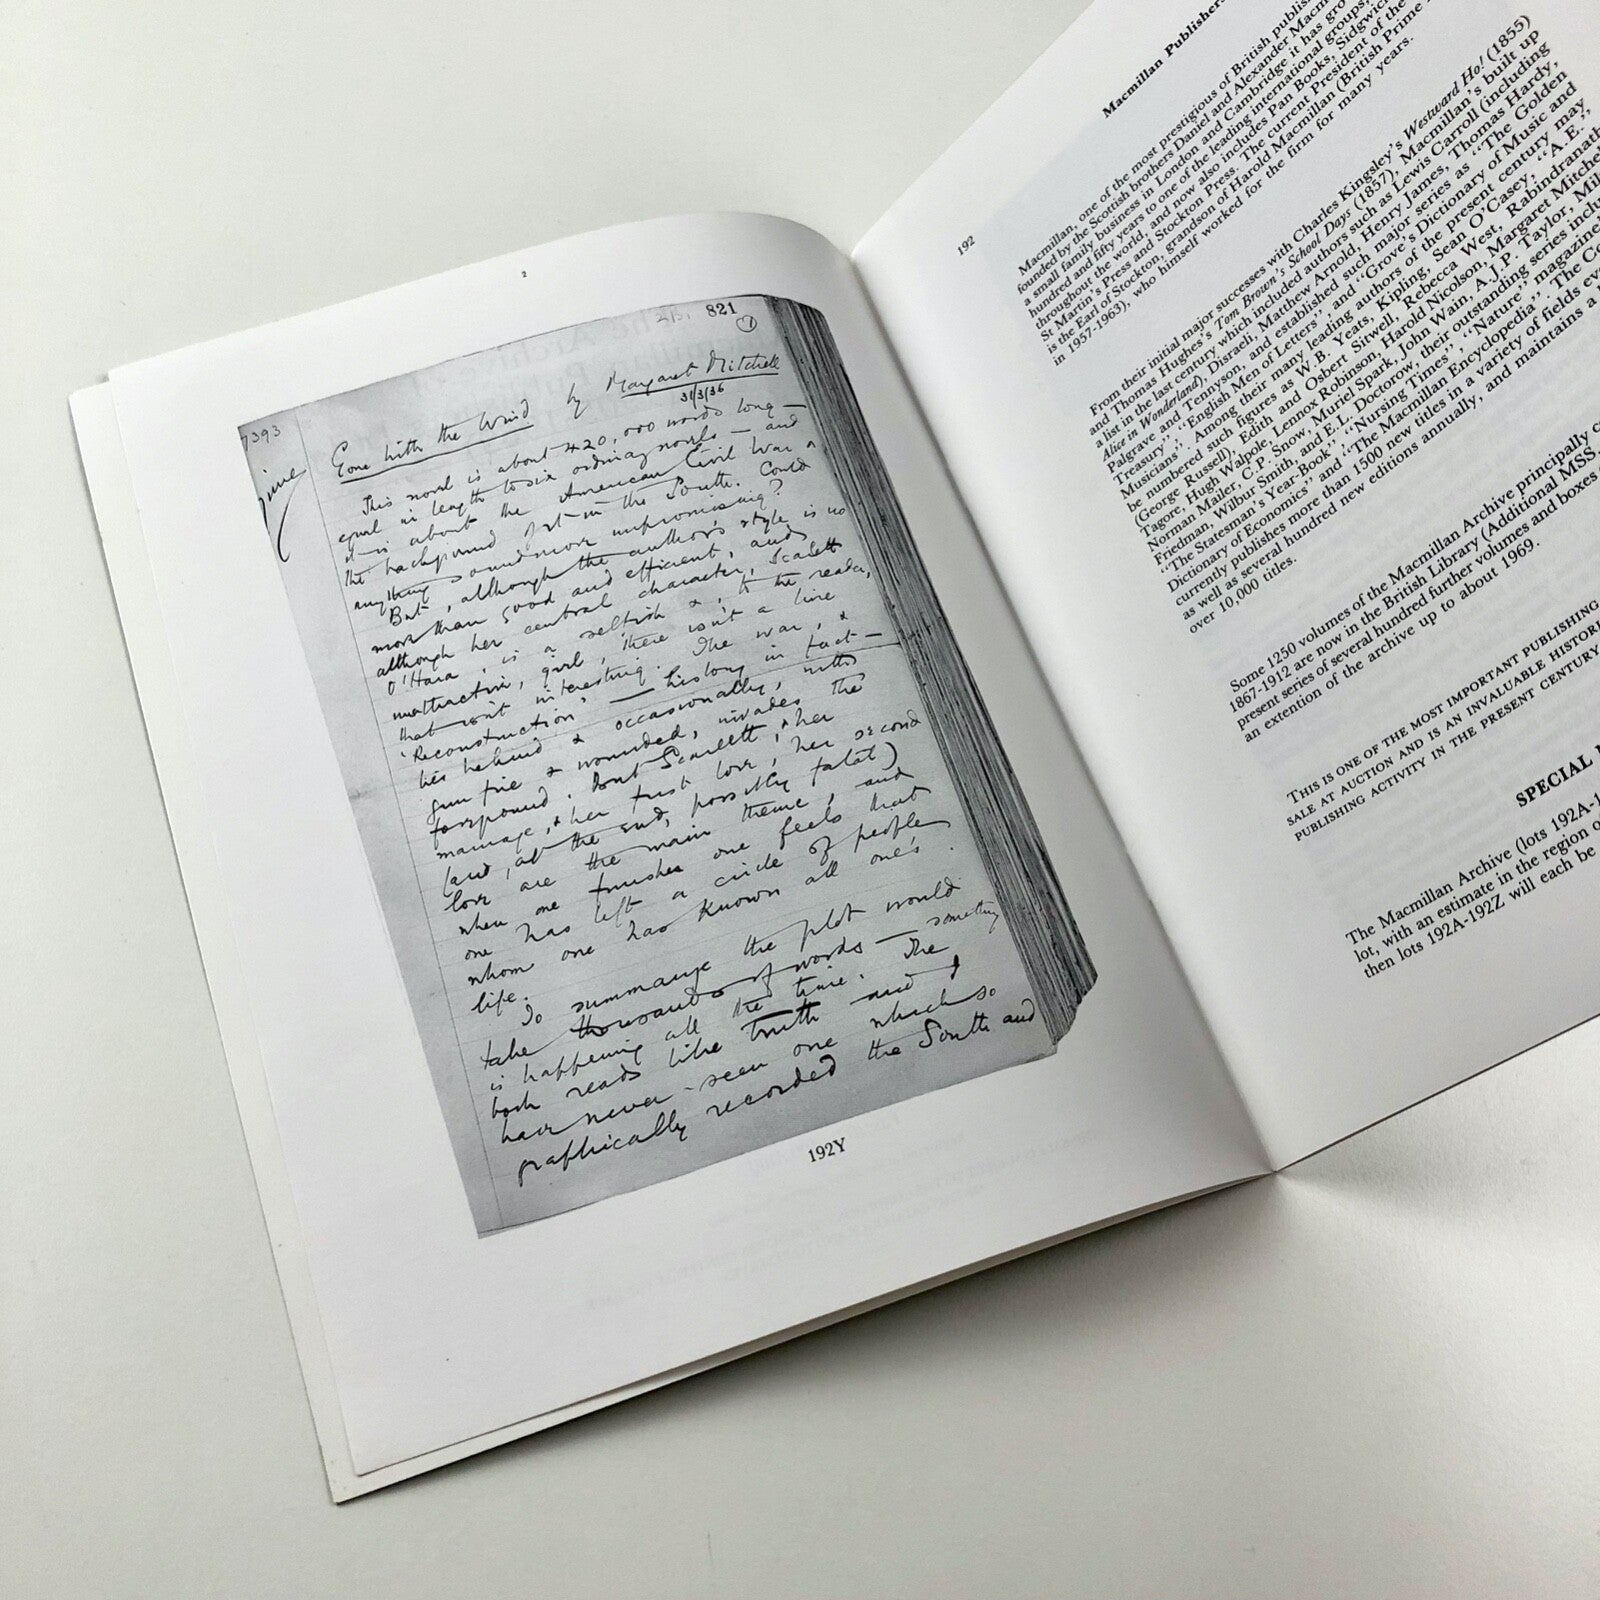 2
821
7393
Gone with the Wind by Margaret Mitchell
31/3/36
This novel is about 420,000 words long —
equal in length to six ordinary novels — and
it is about the American Civil War
the background is in the South. Could
anything sound more unpromising?
But, although the author's style is no
more than good and efficient, and
although her central character, Scarlett
O'Hara, is a selfish &, to the reader,
unattractive, girl, there isn't a line
that isn't interesting. The war, &
'Reconstruction' — history in fact —
lies behind & occasionally, with
gun fire & wounded, invades the
foreground. But Scarlett & her
marriage, & her first love, her second
(and, at the end, possibly fatal)
love are the main theme, and
when one finishes one feels that
one has left a circle of people
whom one has known all one's
life.
To summarize the plot would
take thousands of words — something
is happening all the time. The
book reads like truth and I
have never seen one which so
graphically recorded the South and
192Y
Macmillan Publishers
192
Macmillan, one of the most prestigious of British
founded by the Scottish brothers Daniel and Alexander
a small family business in London and Cambridge it has
hundred and fifty years to one of the leading international groups,
throughout the world, and now also includes Pan Books, Sidgwick
St Martin's Press and Stockton Press. The current President of the
is the Earl of Stockton, grandson of Harold Macmillan (British Prime
in 1957-1963), who himself worked for the firm for many years.
From their initial major successes with Charles Kingsley's Westward Ho! (1855)
and Thomas Hughes's Tom Brown's School Days (1857), Macmillan's built up
a list in the last century which included authors such as Lewis Carroll (including
Alice in Wonderland), Disraeli, Matthew Arnold, Henry James, Thomas Hardy,
Palgrave and Tennyson, and established such major series as "The Golden
Treasury", "English Men of Letters", and "Grove's Dictionary of Music and
Musicians". Among their many leading authors of the present century may
be numbered such figures as W.B. Yeats, Kipling, Sean O'Casey, "A.E."
(George Russell), Edith and Osbert Sitwell, Rebecca West, Rabindranath
Tagore, Hugh Walpole, Lennox Robinson, Harold Nicolson, Margaret Mitchell
Norman Mailer, C.P. Snow, Muriel Spark, John Wain, A.J.P. Taylor,
Friedman, Wilbur Smith, and E.L. Doctorow, their outstanding series
"The Statesman's Year-Book", "Nursing Times", "Nature" magazine
Dictionary of Economics" and "The Macmillan Encyclopedia". The
currently publishes more than 1500 new titles in a variety of fields
as well as several hundred new editions annually, and maintains a
over 10,000 titles.
Some 1250 volumes of the Macmillan Archive principally
1867-1912 are now in the British Library (Additional MSS.
present series of several hundred further volumes and boxes
an extention of the archive up to about 1969.
THIS IS ONE OF THE MOST IMPORTANT PUBLISHING
SALE AT AUCTION AND IS AN INVALUABLE
PUBLISHING ACTIVITY IN THE PRESENT CENTURY
SPECIAL
The Macmillan Archive (lots
lot, with an estimate in the region
then lots 192A-192Z will each be